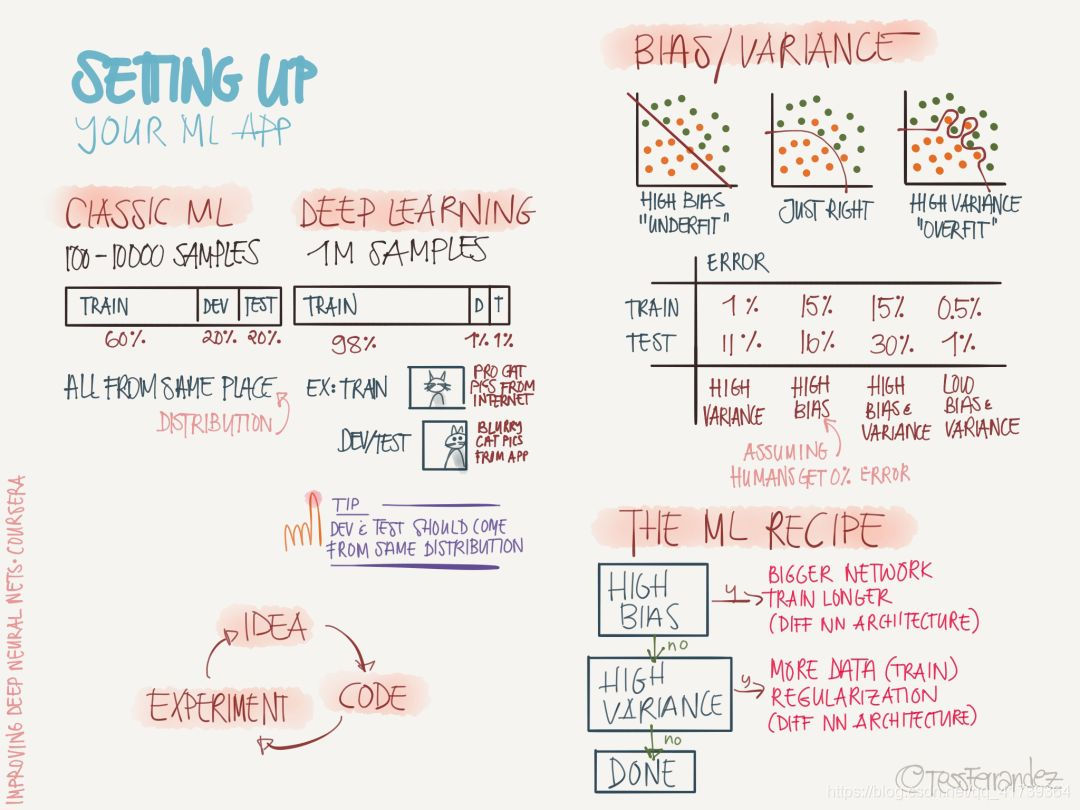 SETTING UP
YOUR ML APP
CLASSIC ML
100-10000 SAMPLES
TRAIN DEV TEST
60% 20% 20%
ALL FROM SAME PLACE
DISTRIBUTION
DEEP LEARNING
1M SAMPLES
TRAIN D T
98% 1% 1%
EX: TRAIN
PRO CAT
PICS FROM
INTERNET
DEV/TEST
BLURRY
CAT PICS
FROM APP
TIP
DEV & TEST SHOULD COME
FROM SAME DISTRIBUTION
IDEA
CODE
EXPERIMENT
BIAS/VARIANCE
HIGH BIAS
"UNDERFIT"
JUST RIGHT
HIGH VARIANCE
"OVERFIT"
ERROR
TRAIN 1% 15% 15% 0.5%
TEST 11% 16% 30% 1%
HIGH
VARIANCE
HIGH
BIAS
HIGH
BIAS &
VARIANCE
LOW
BIAS &
VARIANCE
ASSUMING
HUMANS GET 0% ERROR
THE ML RECIPE
HIGH
BIAS
Y
BIGGER NETWORK
TRAIN LONGER
(DIFF NN ARCHITECTURE)
no
HIGH
VARIANCE
Y
MORE DATA (TRAIN)
REGULARIZATION
(DIFF NN ARCHITECTURE)
no
DONE
IMPROVING DEEP NEURAL NETS · COURSERA
@TessFerrandez